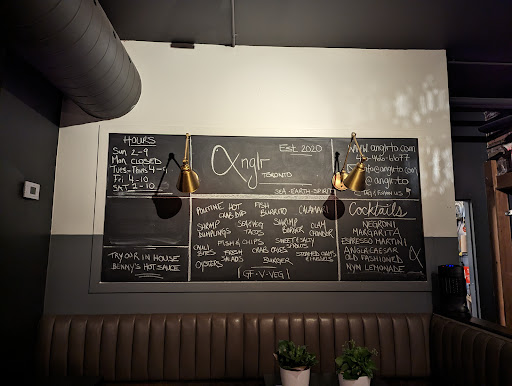 HOURS
SUN 2-9
MON CLOSED
TUES-THURS 4-9
FRI 4-10
SAT 2-10
TRY OUR IN HOUSE
BENNY'S HOT SAUCE
αnglr
TORONTO
EST. 2020
SEA·EARTH·SPIRIT
POUTINE HOT FISH CALAMARI
CRAB DIP BURRITO
SHRIMP SEA+VEG SHRIMP CLAM
DUMPLINGS TACOS BURGER CHOWDER
CAULI FISH & CHIPS SWEET & SALTY
BITES SPROUTS
FRESH CRAB CAKES STEAMED CLAMS
OYSTERS SALADS BURGER
GF·V·VEG
WWW.anglrto.com
@anglrto
Cocktails
NEGRONI
MARGARITA
ESPRESSO MARTINI
ANGLR CAESAR
OLD FASHIONED
NYM LEMONADE
α